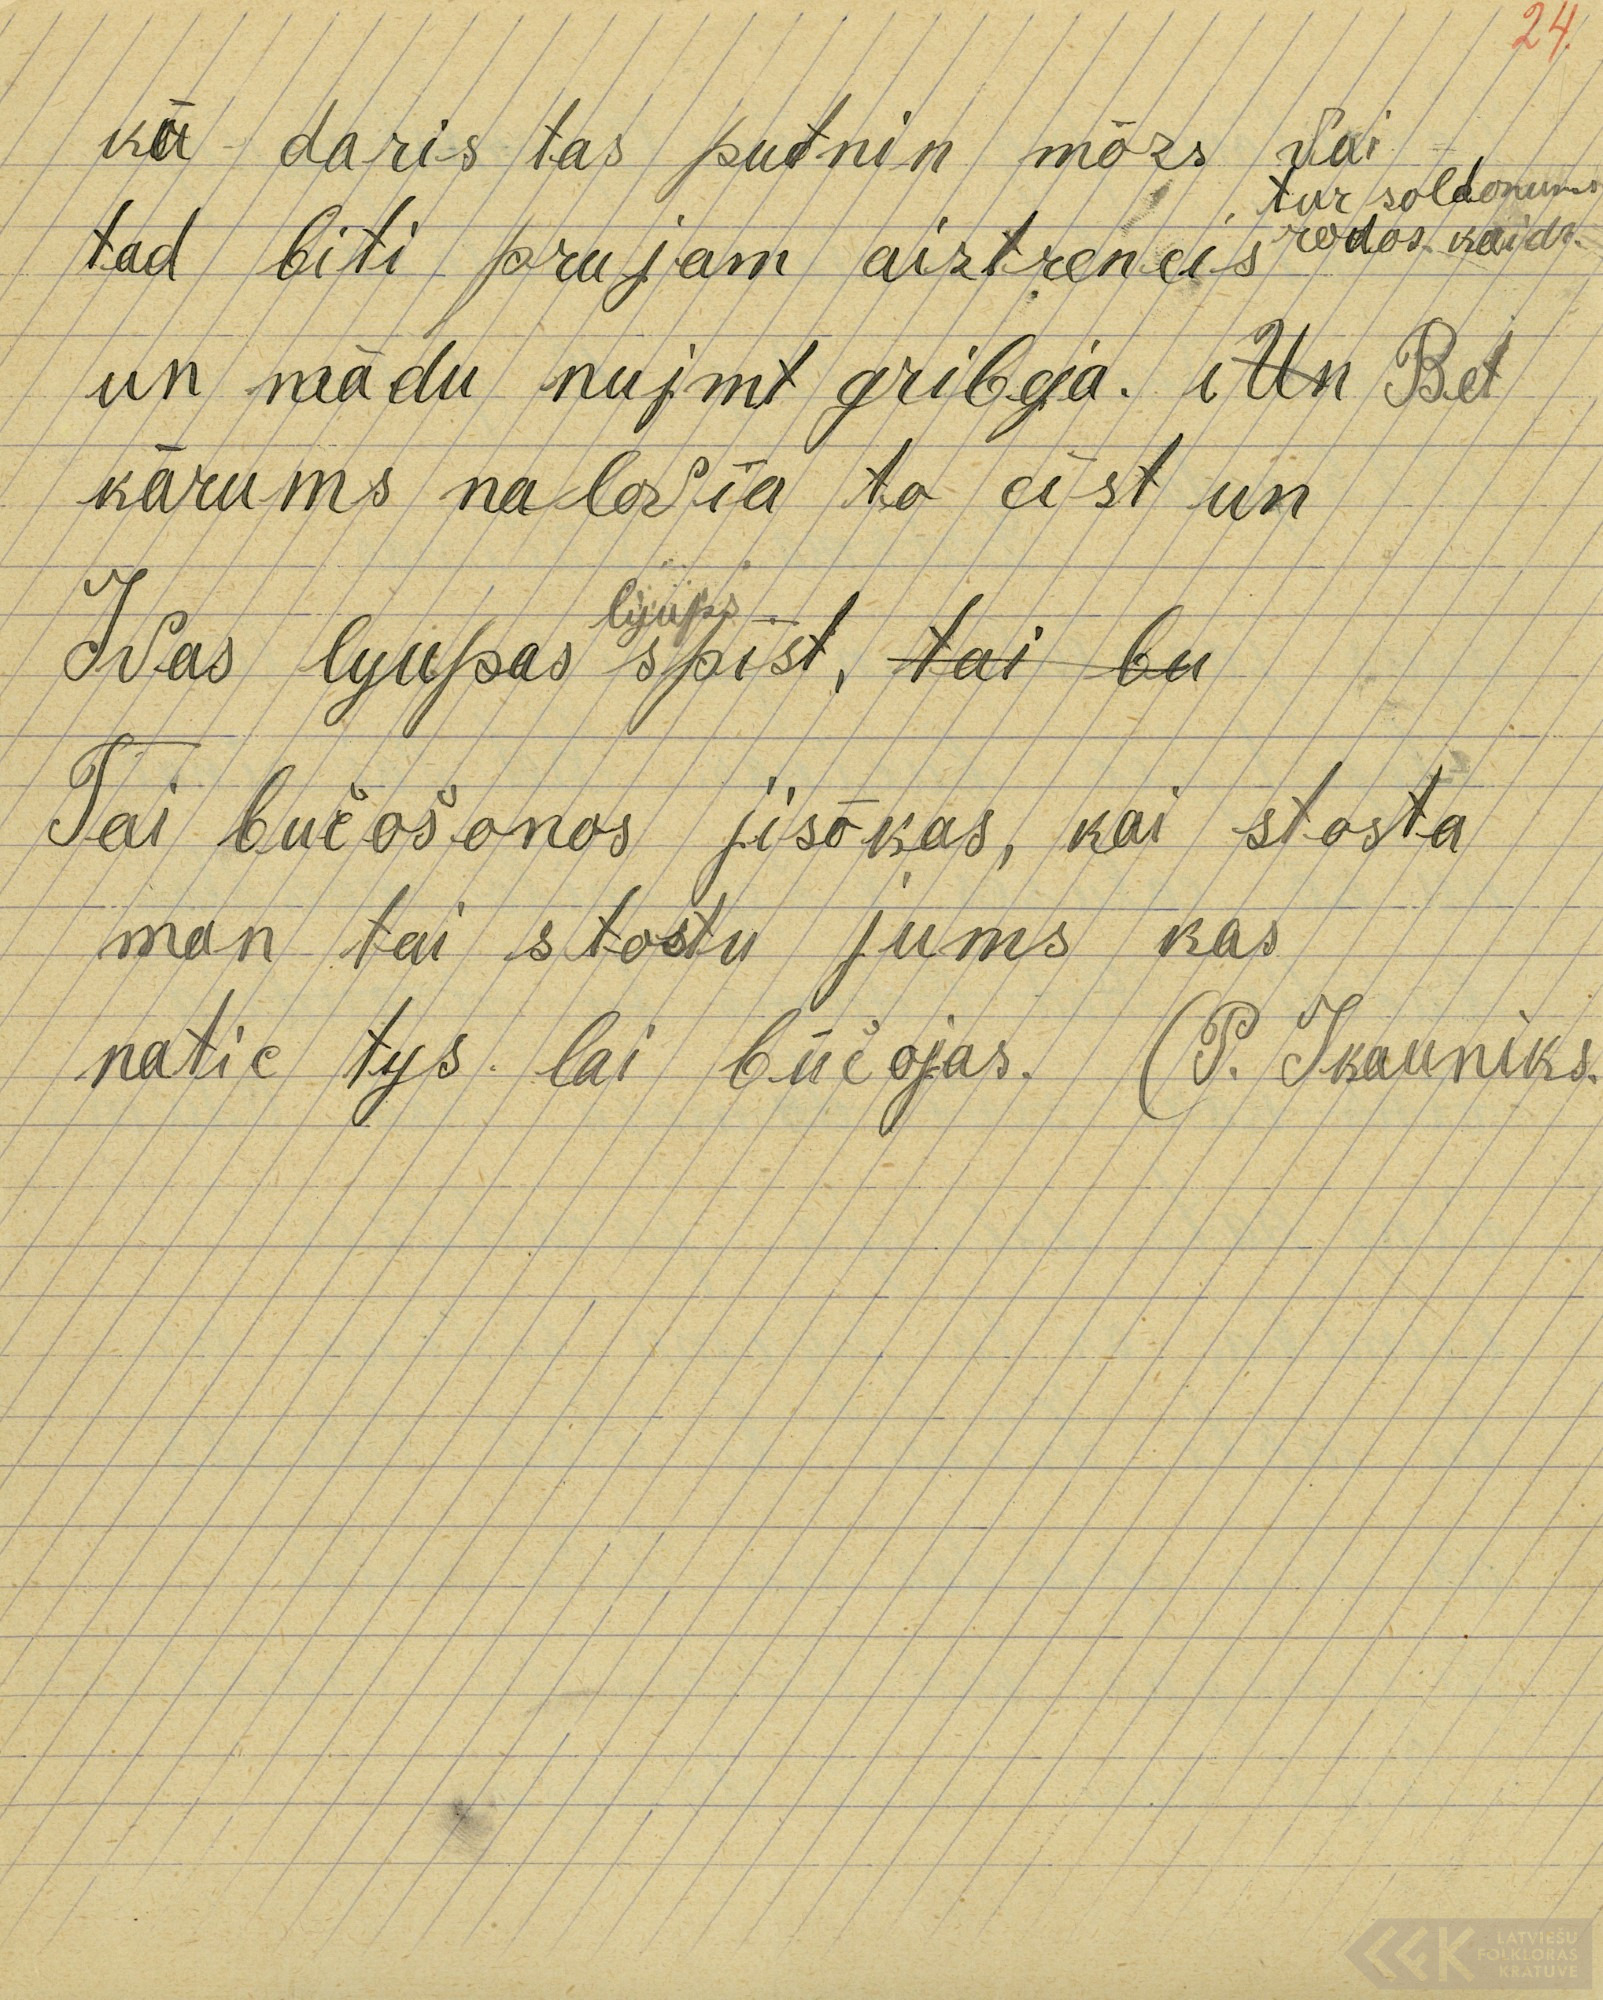 24.
kā daris tas putnin mōzs vai
tur soldonums
tad biti prujam aiztrencis rodos kaids.
un mādu nujmt gribēja. Un Bet
kārums na lovīa to cīst un
lyups
Ivas lyupas spīst, tai bu
Tai bučošonos jisōkas, kai stosta
man tai stostu jums kas
natic tys lai būčojas. (P. Ikauniks.
LATVIEŠU
FOLKLORAS
KRĀTUVE